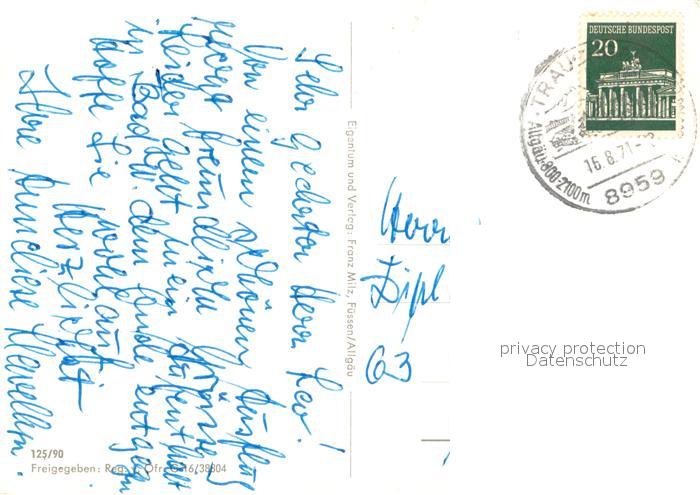 Sehr geehrter Herr Leo!
Von einem schönen Ausflug
freundliche Grüsse
Leider geht mein Aufenthalt
in Bad dem Ende entgegen
hoffe Sie wohlauf
Herzlichst
Ihre Anneliese
Eigentum und Verlag: Franz Milz, Füssen/Allgäu
125/90
Freigegeben: Reg. Ofr. G 16/38804
DEUTSCHE BUNDESPOST
20
TRAU
Allgäu-800-2100m
16.8.71
8959
Herrn
Dipl
63
privacy protection
Datenschutz